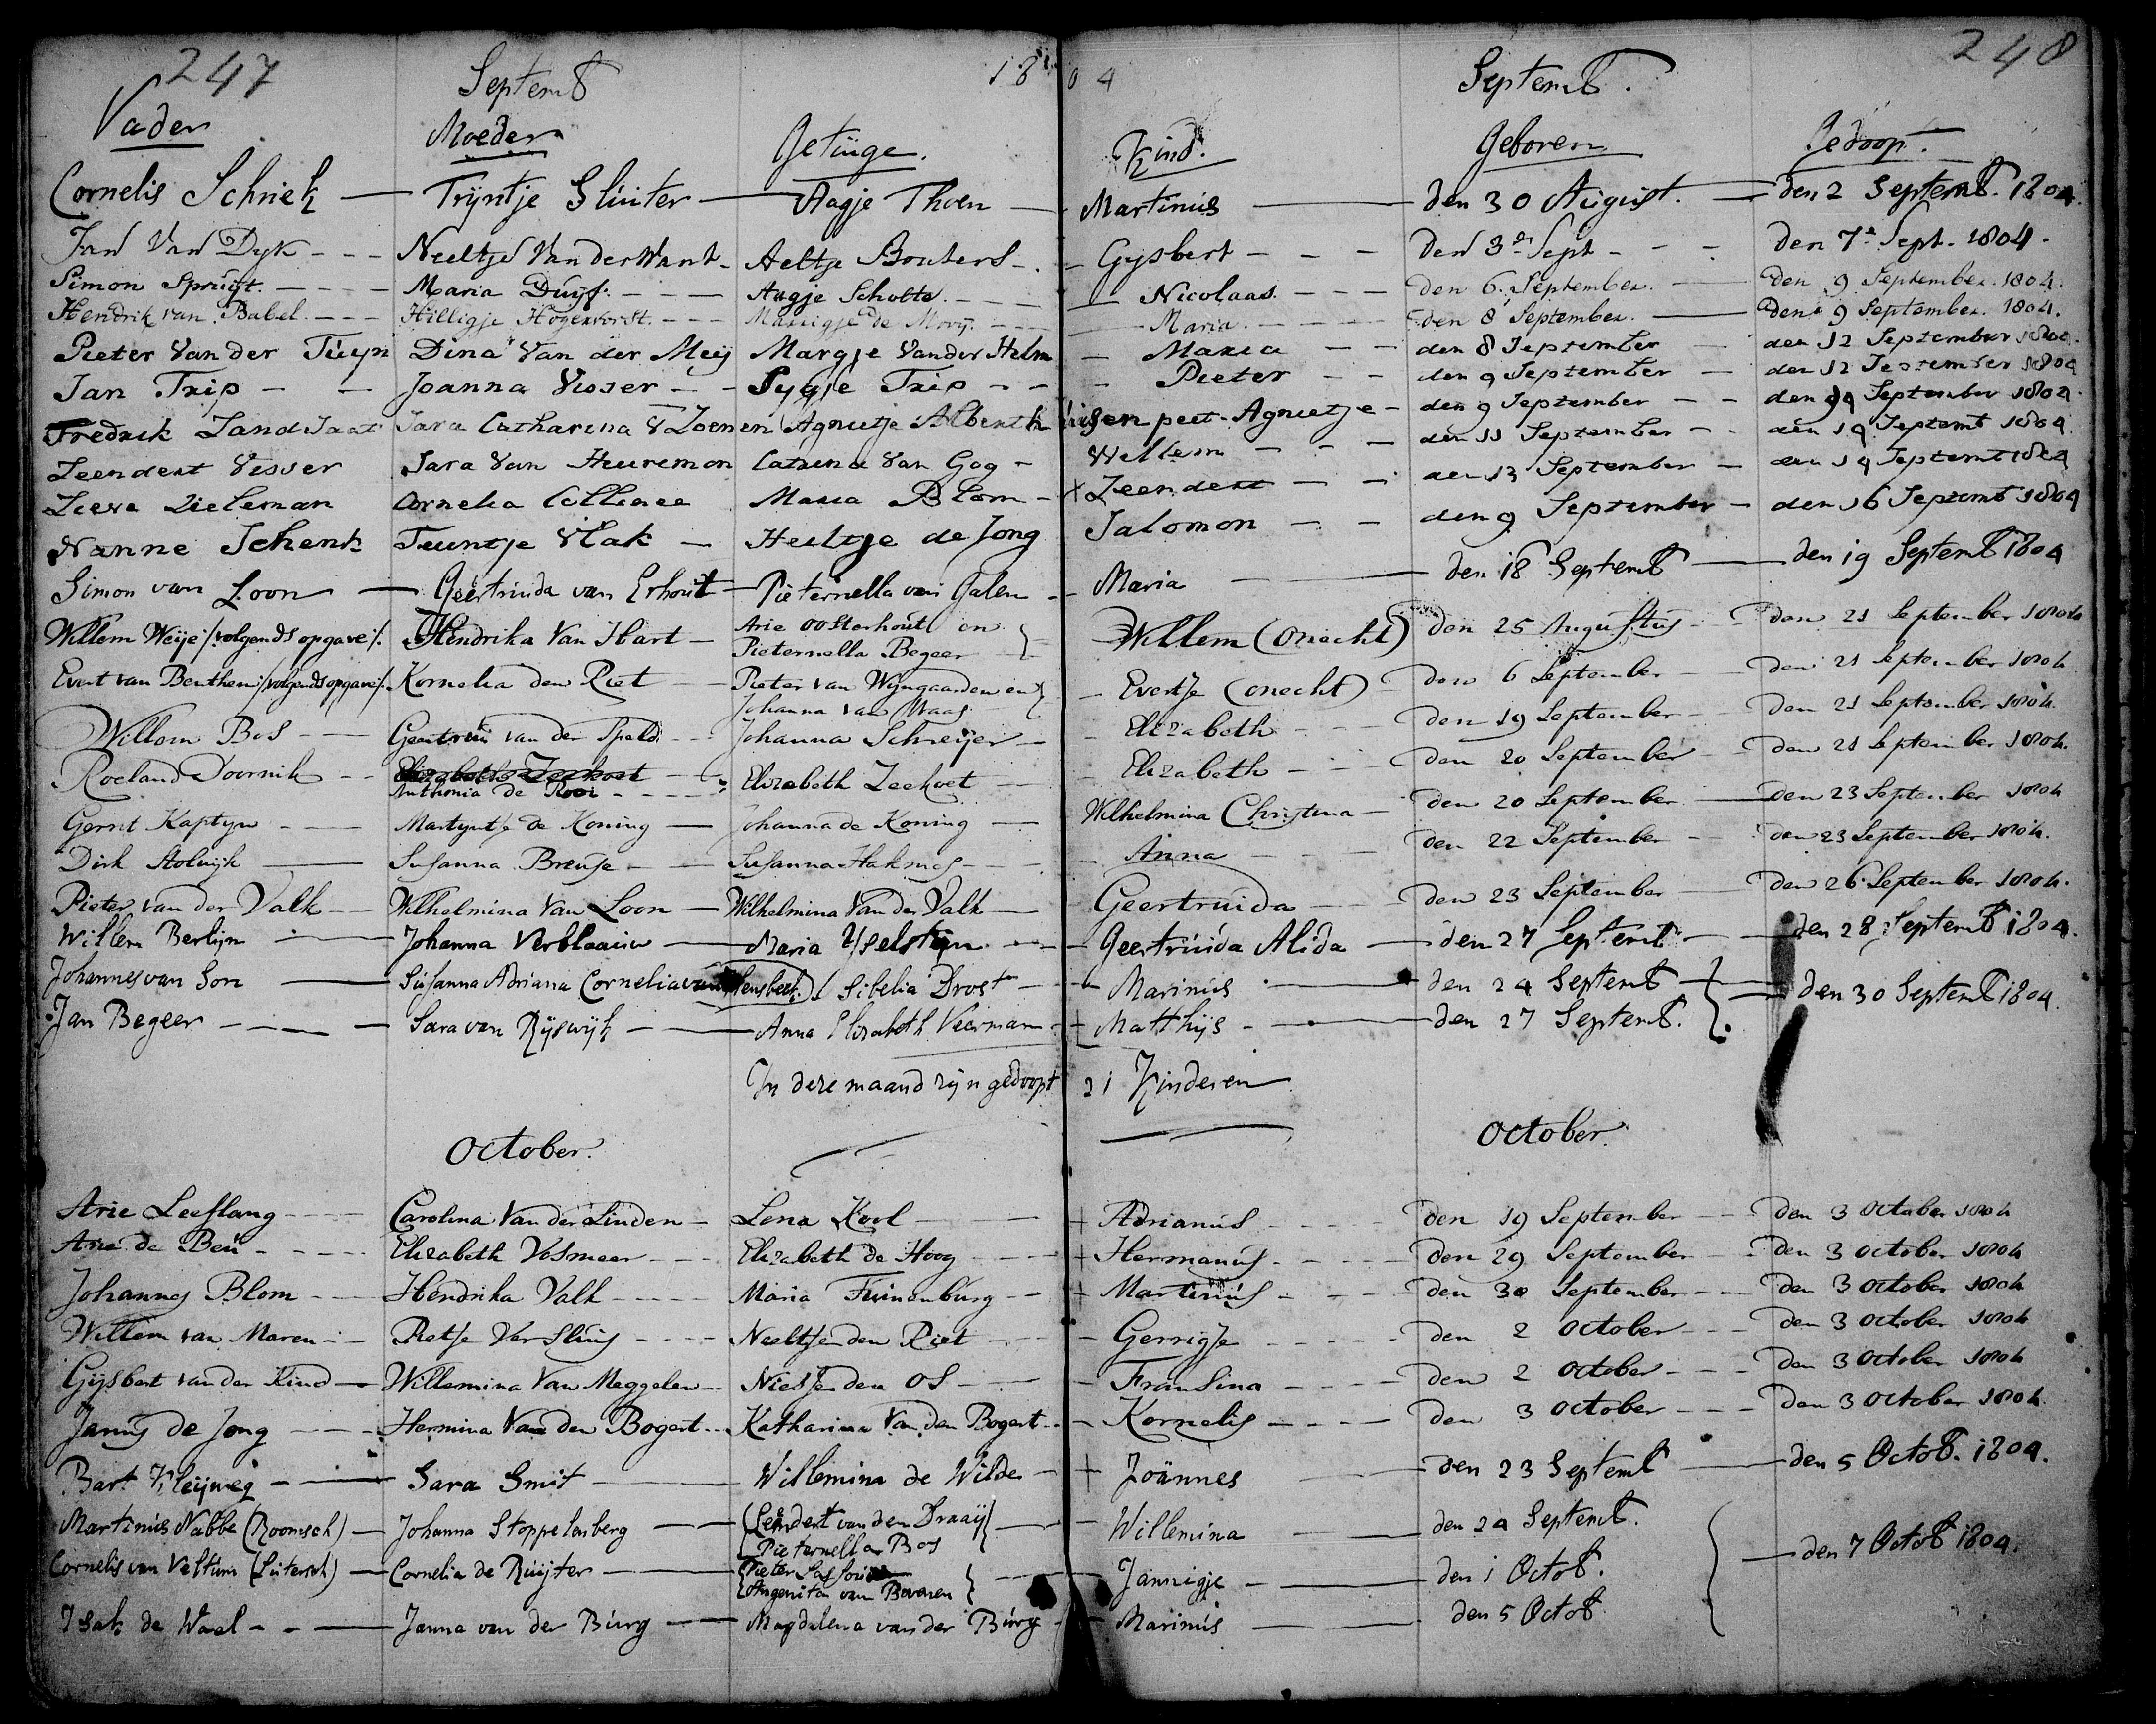 247 Septemb 18 04 Septemb. 248
Vader Moeder Getüge. Kind. Geboren Gedoopt.
Cornelis Schriek — Tryntje Sluiter — Aagje Thoen — Martinus — den 30 August. — den 2 Septemb. 1804.
Jan Van Dyk - - - Neeltje Van der Want - Aeltje Bouters - Gysbert - - - den 3de Sept - - - den 7de Sept. 1804.
Simon Spruyt. - - - Maria Duyf. - - - Aagje Scholte. - - - Nicolaas. - - - den 6. September. — den 9 September. 1804.
Hendrik van Babel. - - - Hilligje Hogenvorst. - - - Marrigje de Mooy. - - - Maria. - - - den 8 September. — den 9 September. 1804.
Pieter Van der Tuyn Dina Van der Meij Margje Van der Helm - Maria - - den 8 September - den 12 September 1804.
Jan Trip - - Joanna Visser - - Sygje Trip - - - Pieter - - den 9 September - den 12 September 1804
Fredrik Landsaat Sara Catharina V Loenen Agnietje Alberth huisen peet - Agnietje - den 9 September - - den 14 September 1804.
Leendert Visser Sara Van Heuremon Catrina Van Gog - Willem - - - den 11 September - - den 14 Septemb 1804
Lieve Dieleman Cornelia Collenee Maria Blom - X Leendert - - den 13 September - den 14 Septemb 1804
Nanne Schenk Teuntje Vlak - Heiltje de Jong Salomon - - den 9 September - den 16 Septemb 1804
Simon van Loon — Geertruida van Erhout — Pieternella van Galen - Maria — den 18 Septemb — den 19 Septemb 1804
Willem Weije /: volgends opgave :/. Hendrika Van Hart - Arie Oosterhout en
Pieternella Begeer } Willem (onecht) den 25 Augustus - - den 21 September 1804
Evert van Benthem /: volgends opgave :/. Kornelia den Riet — Pieter van Wyngaarden en
Johanna van Maas } - Evertje (onecht) - den 6 September - - den 21 September 1804
Willem Bos - — Geertrui van der Speld - - - Johanna Schreijer - - Elizabeth - - - den 19 September - - den 21 September 1804.
Roeland Doornik - - Elizabeth Zeekoet
Anthonia de Rooi - - - - Elizabeth Zeekoet — - Elizabeth - - - den 20 September - - den 21 September 1804.
Gerrit Kaptyn - — Martyntje de Koning — Johanna de Koning — Wilhelmina Christina - den 20 September — den 23 September 1804
Dirk Stolwijk — Susanna Breuse - — Susanna Hakmes - - Anna - - - den 22 September - - den 23 September 1804.
Pieter van der Valk - - Wilhelmina Van Loon — Wilhelmina Van der Valk — Geertruida - - den 23 September — den 26 September 1804.
Willem Berlijn - — Johanna Verblaauw — Maria Ysselstijn - - Geertruida Alida — den 27 Septemb - — den 28 Septemb 1804.
Johannes van Son — Susanna Adriana Cornelia van Hensbeek. Sibelia Drost - - Marinus - — den 24 Septemb
Jan Begeer - — Sara van Rijswijk - — Anna Elisabeth Veerman - Matthijs - — den 27 Septemb. } — den 30 Septemb 1804.
In deze maand zijn gedoopt 21 Kinderen
October. October.
Arie Leeflang - - - Carolina Van der Linden - Lena Kool — + Adrianus - - - - den 19 September - - den 3 October 1804
Arie de Beu - - - - Elizabeth Vosmeer - - - Elizabeth de Hoog - - - + Hermanus - - - - den 29 September - - den 3 October 1804
Johannes Blom - - - Hendrika Valk - - - - Maria Fuinenburg - - + Martinus - - - den 30 September - - den 3 October 1804
Willem van Maren - - Pietje Versluis - - - - Neeltje den Riet - - - Gerrigje - - - den 2 October - - - den 3 October 1804
Gijsbert van der Kind — Willemina Van Meggelen - - Niesje den Os - — - Fransina - - - - den 2 October - - - den 3 October 1804
Janus de Jong - - - - Hermina Van den Bogert - - Katharina Van den Bogert - - - Kornelis - - - - den 3 October - - - den 3 October 1804
Bart Kleijweg - — Sara Smit — Willemina de Wilde - + Joännes — den 23 Septemb — den 5 Octob. 1804.
Martinus Nabbe (Roomsch) — Johanna Stoppelenberg — { Leendert van den Draaij
Pieternella Bos } - - Willemina — den 24 Septemb.
Cornelis van Veltum (Lutersch) — Cornelia de Ruijter — { Pieter
Angenita van Bovenen } - - Jannigje - — den 1 Octob. } — den 7 Octob 1804.
Isak de Waal - - — Janna van der Burg — Magdalena van der Burg - - Marinus — den 5 Octob